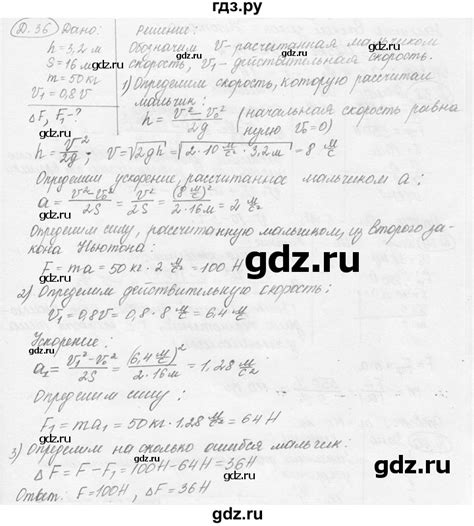 гдз.ру
Д.36 Дано:
h = 3,2 м
S = 16 м
m = 50 кг
v₁ = 0,8 v
ΔF, F₁ - ?
Решение:
Обозначим v - рассчитанная мальчиком
скорость, v₁ - действительная скорость.
1) Определим скорость, которую рассчитал
мальчик:
h = (v² - v₀²)/2g (начальная скорость равна
нулю v₀ = 0)
h = v²/2g, v = √2gh = √2·10 м/с²·3,2 м = 8 м/с
Определим ускорение, рассчитанное мальчиком a:
a = (v² - v₀²)/2S = v²/2S = (8 м/с)²/2·16 м = 2 м/с²
Определим силу, рассчитанную мальчиком, из второго за-
кона Ньютона:
F = ma = 50 кг · 2 м/с² = 100 Н
gdz.ru
2) Определим действительную скорость:
v₁ = 0,8v = 0,8 · 8 м/с = 6,4 м/с
Ускорение:
a₁ = (v₁² - v₀²)/2S = (6,4 м/с)²/2·16 м = 1,28 м/с²
Определим силу:
F₁ = ma₁ = 50 кг · 1,28 м/с² = 64 Н
3) Определим на сколько ошибся мальчик:
ΔF = F - F₁ = 100Н - 64Н = 36Н
Ответ: F = 100Н, ΔF = 36Н
gdz.ru
gdz.ru
gdz.ru
gdz.ru
gdz.ru
gdz.ru